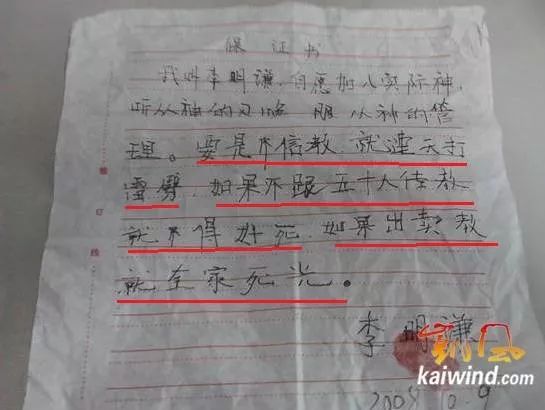 保证书
我叫李明谦，自愿加入实际神，
听从神的 服从神的管
理。要是不信教，就遭天打
雷劈，如果不跟五十人传教
就不得好死，如果出卖教
就全家死光。
李明谦
kaiwind.com